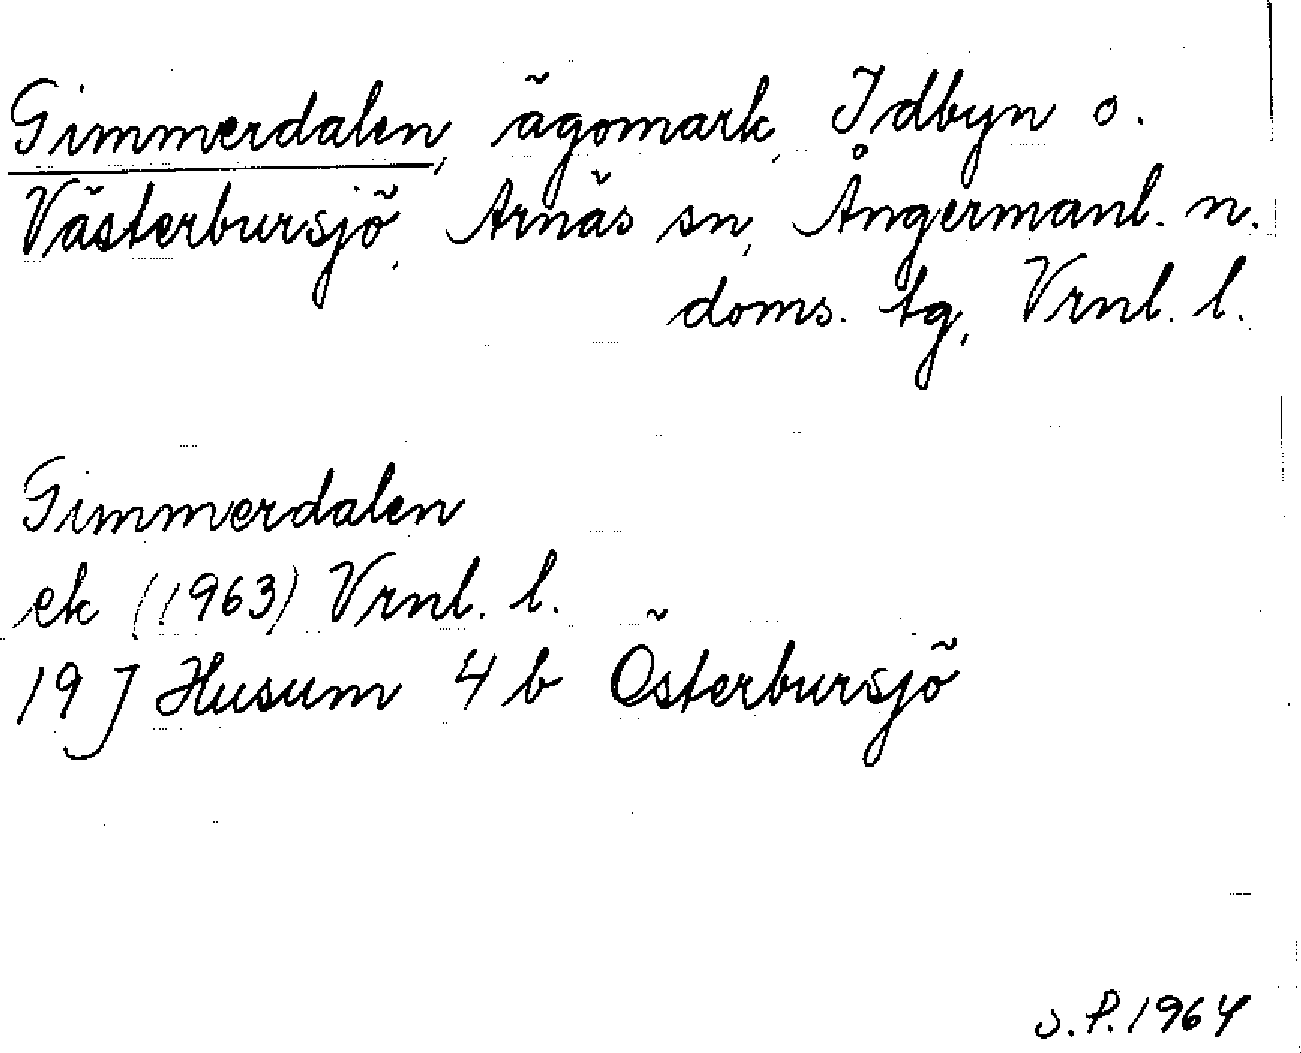 Gimmerdalen, ägomark, Idbyn o.
Västerbursjö, Arnäs sn, Ångermanl. n.
doms. tg, Vrnl. l.
Gimmerdalen
ek (1963) Vrnl. l.
19 J Husum 4 b Österbursjö
S.P. 1964